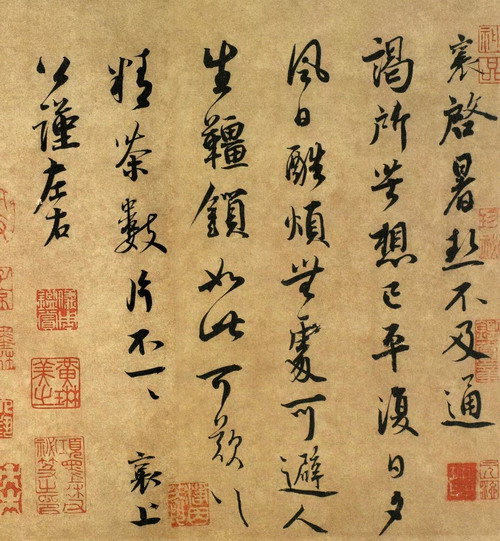 襄啓暑熱不及通
謁所苦想已平復日夕
風日酷煩無處可避人
生韁鎖如此可歎可歎
精茶數片不一一襄上
公謹左右